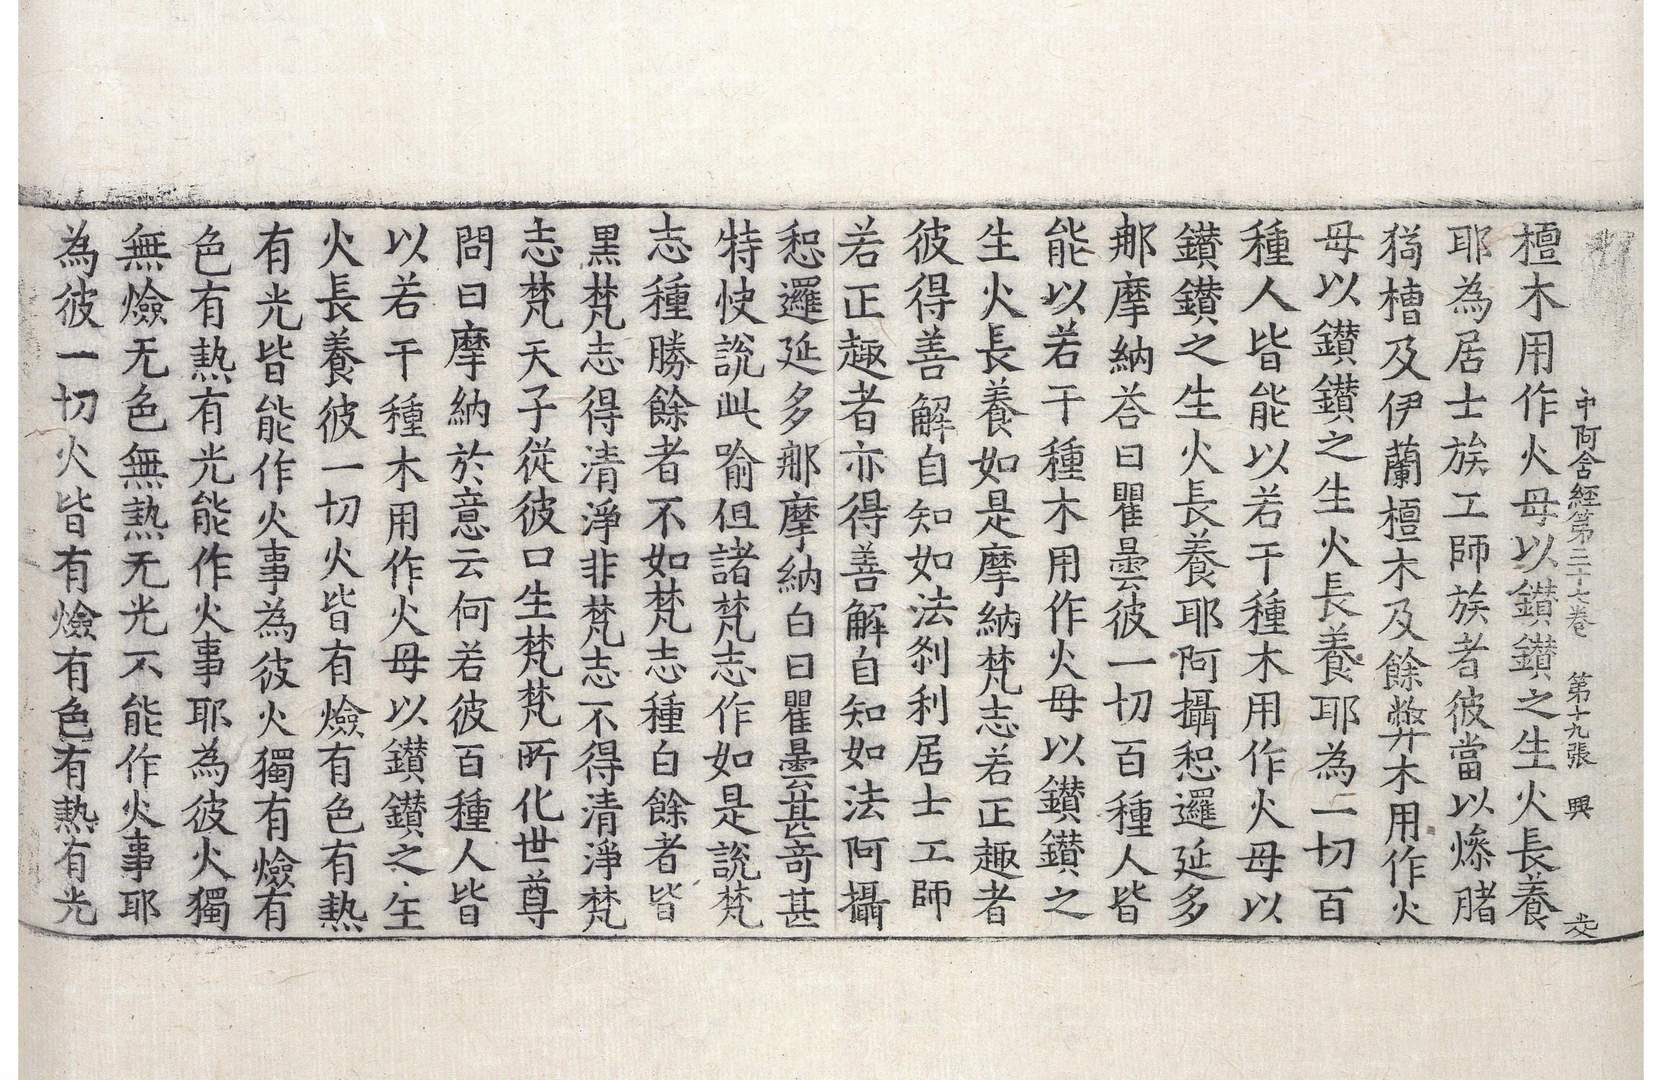 中阿含經第三十七卷 第十九張 興
檀木用作火母以鑽鑽之生火長養
耶為居士族工師族者彼當以㷮豬
猪槽及伊蘭檀木及餘弊木用作火
母以鑽鑽之生火長養耶為一切百
種人皆能以若干種木用作火母以
鑽鑽之生火長養耶阿攝惒邏延多
那摩納荅曰瞿曇彼一切百種人皆
能以若干種木用作火母以鑽鑽之
生火長養如是摩納梵志若正趣者
彼得善解自知如法刹利居士工師
若正趣者亦得善解自知如法阿攝
惒邏延多那摩納白曰瞿曇甚奇甚
特快說此喻但諸梵志作如是說梵
志種勝餘者不如梵志種白餘者皆
黑梵志得清淨非梵志不得清淨梵
志梵天子從彼口生梵梵所化世尊
問曰摩納於意云何若彼百種人皆
以若干種木用作火母以鑽鑽之生
火長養彼一切火皆有燄有色有熱
有光皆能作火事為彼火獨有燄有
色有熱有光能作火事耶為彼火獨
無燄无色無熱无光不能作火事耶
為彼一切火皆有燄有色有熱有光